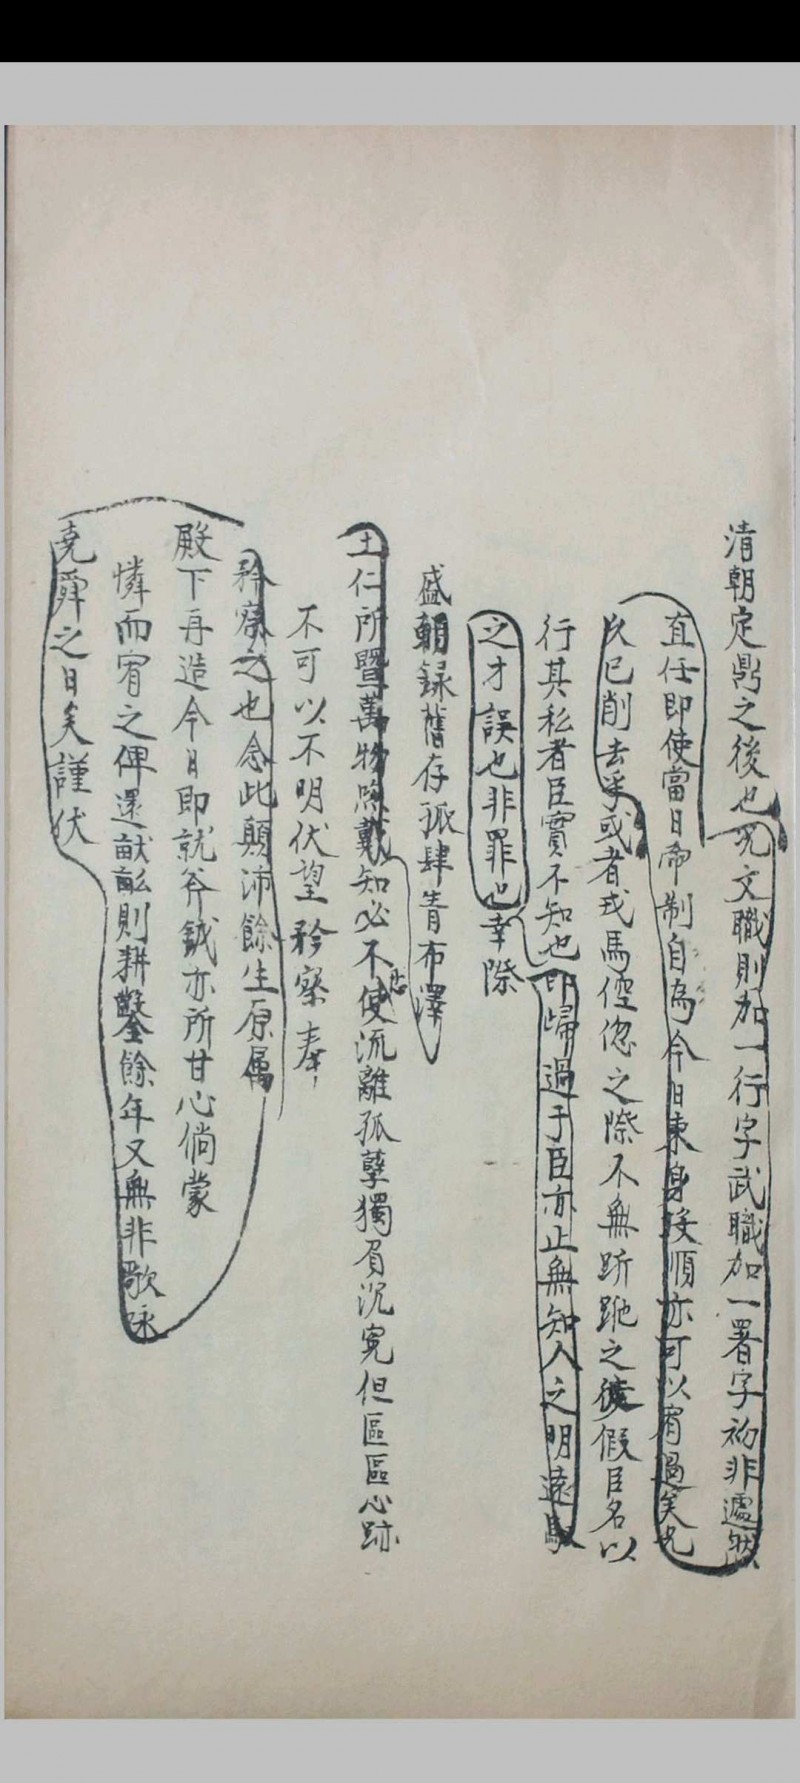 清朝定鼎之後也況文職則加一行字武職加一署字初非遽然
直任即使當日帝制自為今日束身投順亦可以宥過矣况
久已削去乎或者戎馬倥偬之際不無跅跪之徒假臣名以
行其私者臣實不知也即歸過于臣亦止無知人之明遠馭
之才誤也非罪也幸際
盛朝録舊存孤肆眚布澤
王仁所暨萬物照戴知必不忍使流離孤孽獨負沉寃但區區心跡
不可以不明伏望矜察奉
矜察之也念此顛沛餘生原屬
殿下再造今日即就斧鉞亦所甘心倘蒙
憐而宥之俾還畎畝則耕鑿餘年又無非歌咏
堯舜之日矣謹伏